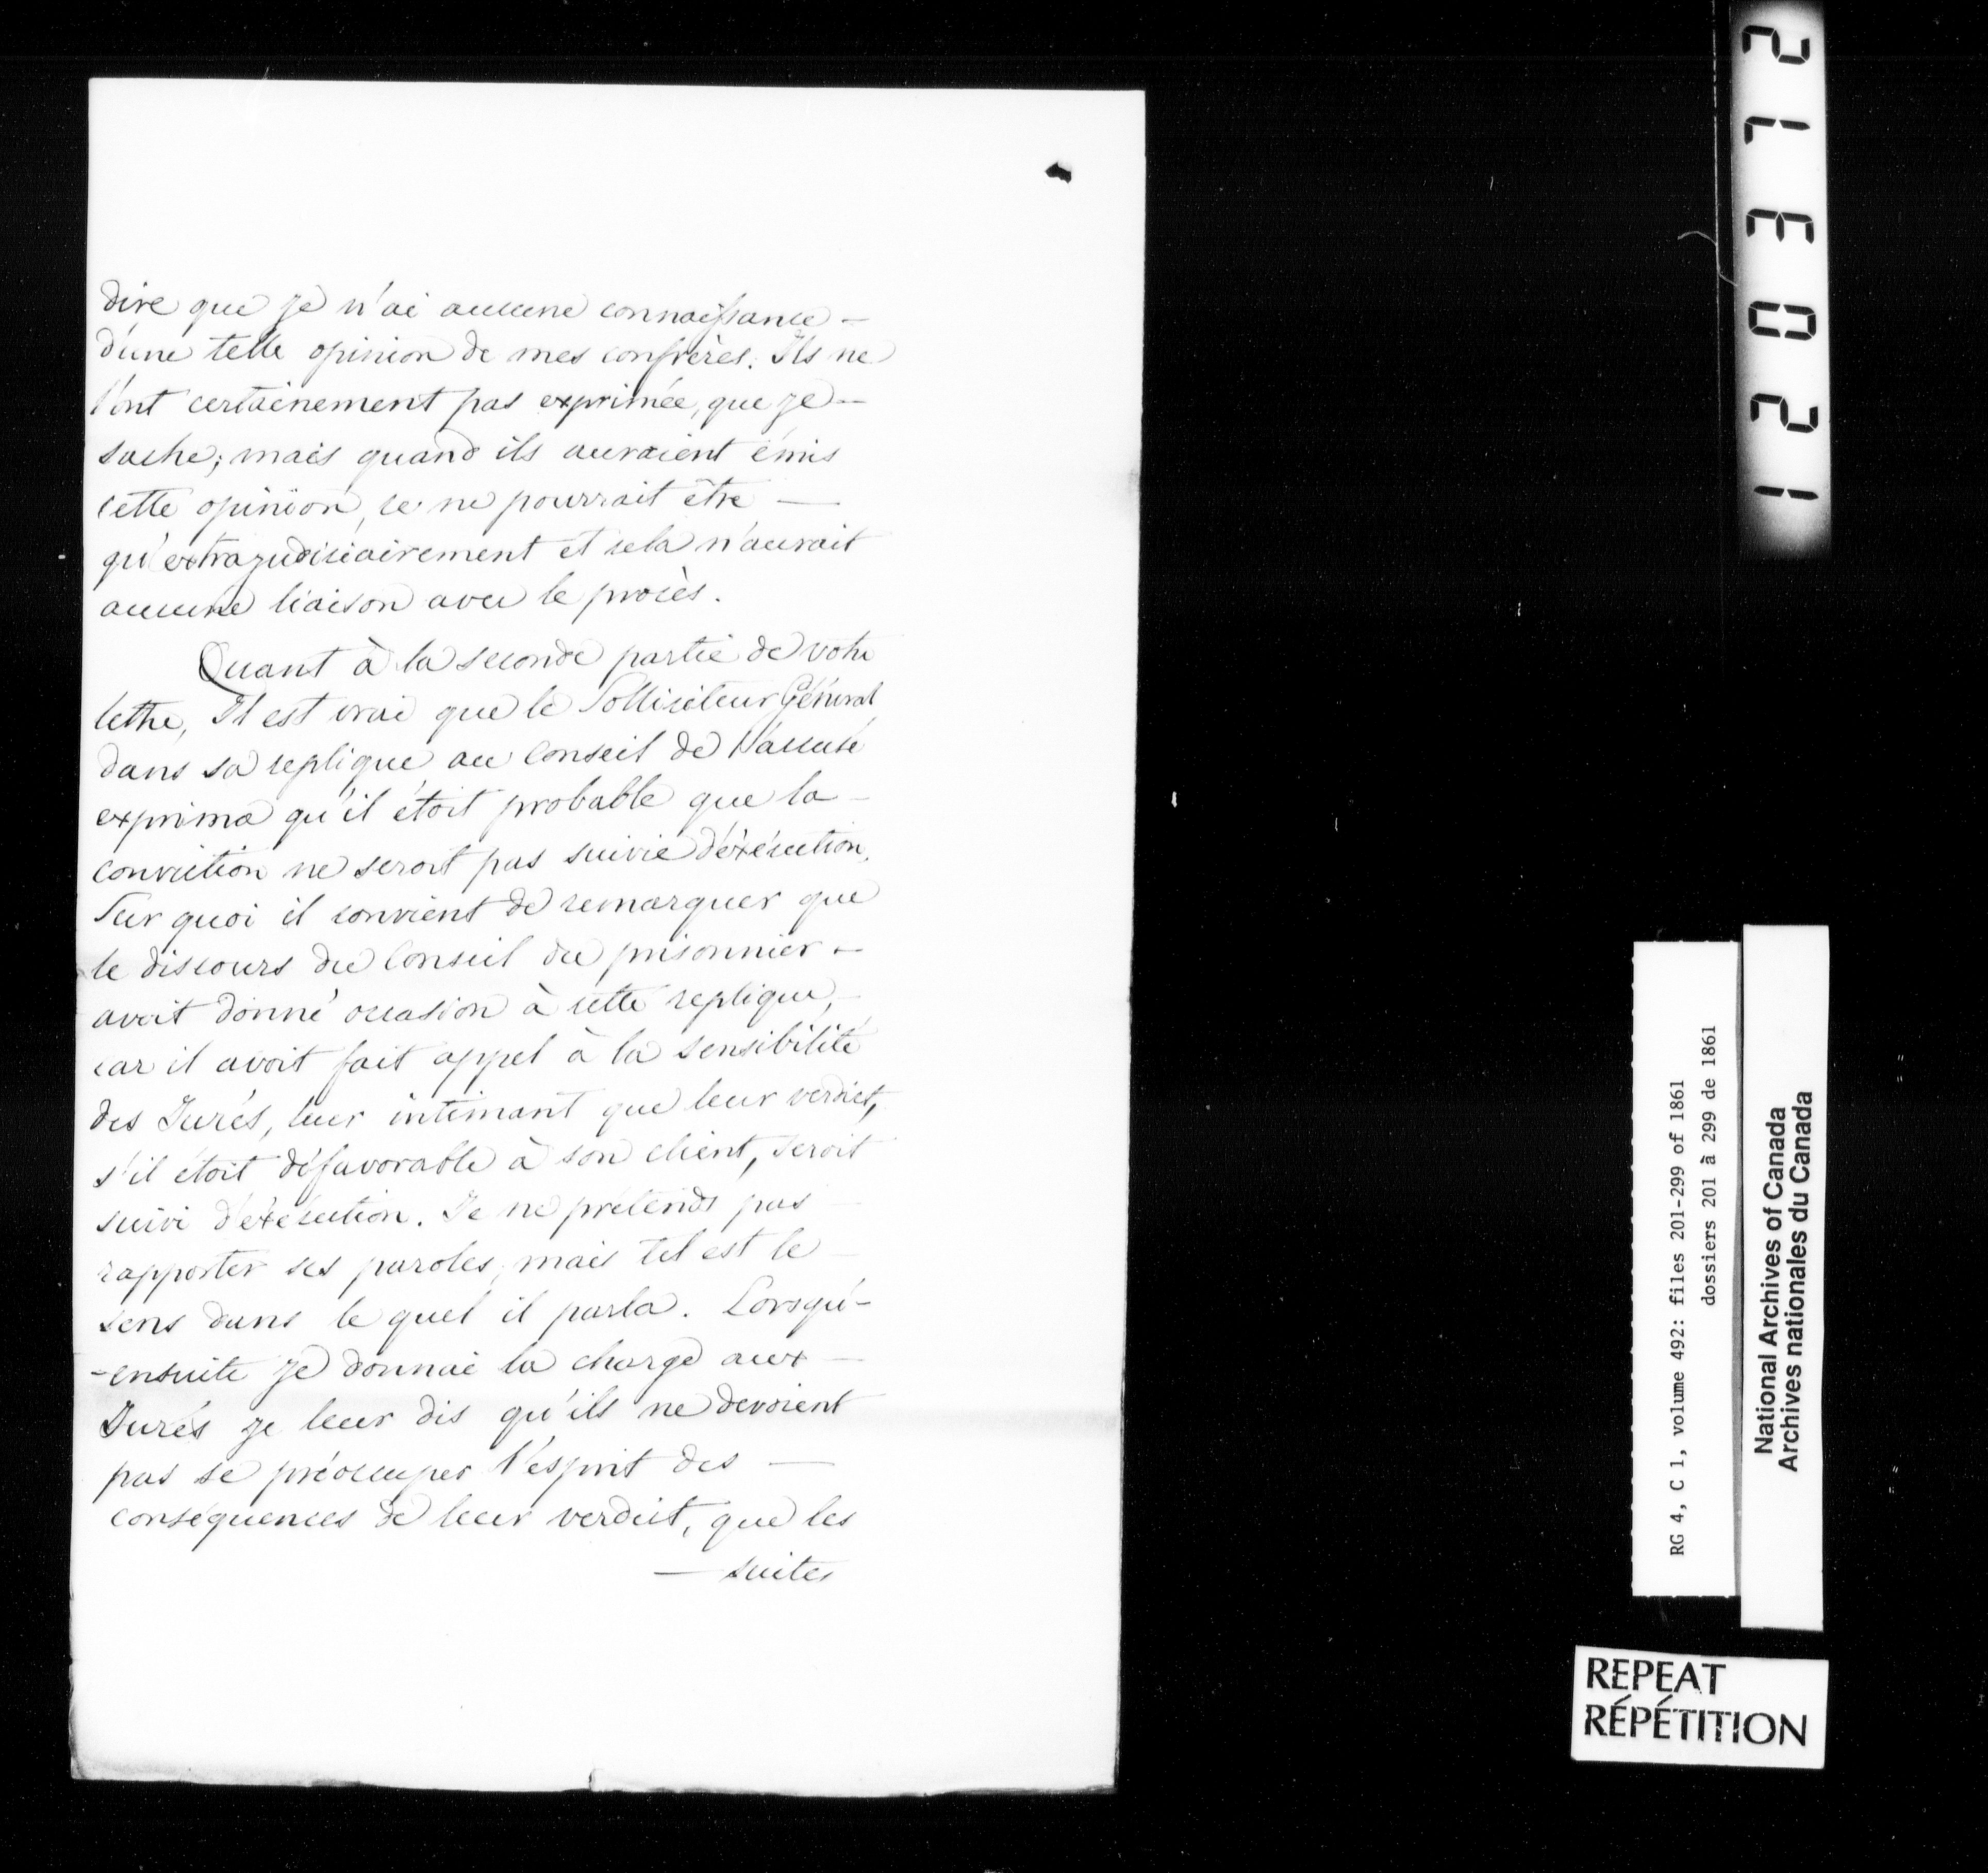 dire que je n'ai aucune connaissance —
d'une telle opinion de mes confrères. Ils ne
l'ont certainement pas exprimée, que je —
sache; mais quand ils auraient émis
cette opinion, ce ne pourrait être —
qu'extrajudiciairement et cela n'aurait
aucune liaison avec le procès.
Quant à la seconde partie de votre
lettre, Il est vrai que le Solliciteur Général
dans sa replique au Conseil de l'accusé
exprima qu'il étoit probable que la —
conviction ne seroit pas suivie d'éxécution.
Sur quoi il convient de remarquer que
le discours du Conseil du prisonnier —
avoit donné occasion à cette replique, —
car il avoit fait appel à la sensibilité
des Jurés, leur intimant que leur verdict,
s'il étoit défavorable à son client, seroit
suivi d'éxécution. Je ne prétends pas —
rapporter ses paroles, mais tel est le —
sens dans le quel il parla. Lorsqu'-
-ensuite je donnai la charge aux —
Jurés je leur dis qu'ils ne devoient
pas se préoccuper l'esprit des —
conséquences de leur verdict, que les
— suites
21E021
RG 4, C 1, volume 492: files 201-299 of 1861
dossiers 201 à 299 de 1861
National Archives of Canada
Archives nationales du Canada
REPEAT
RÉPÉTITION